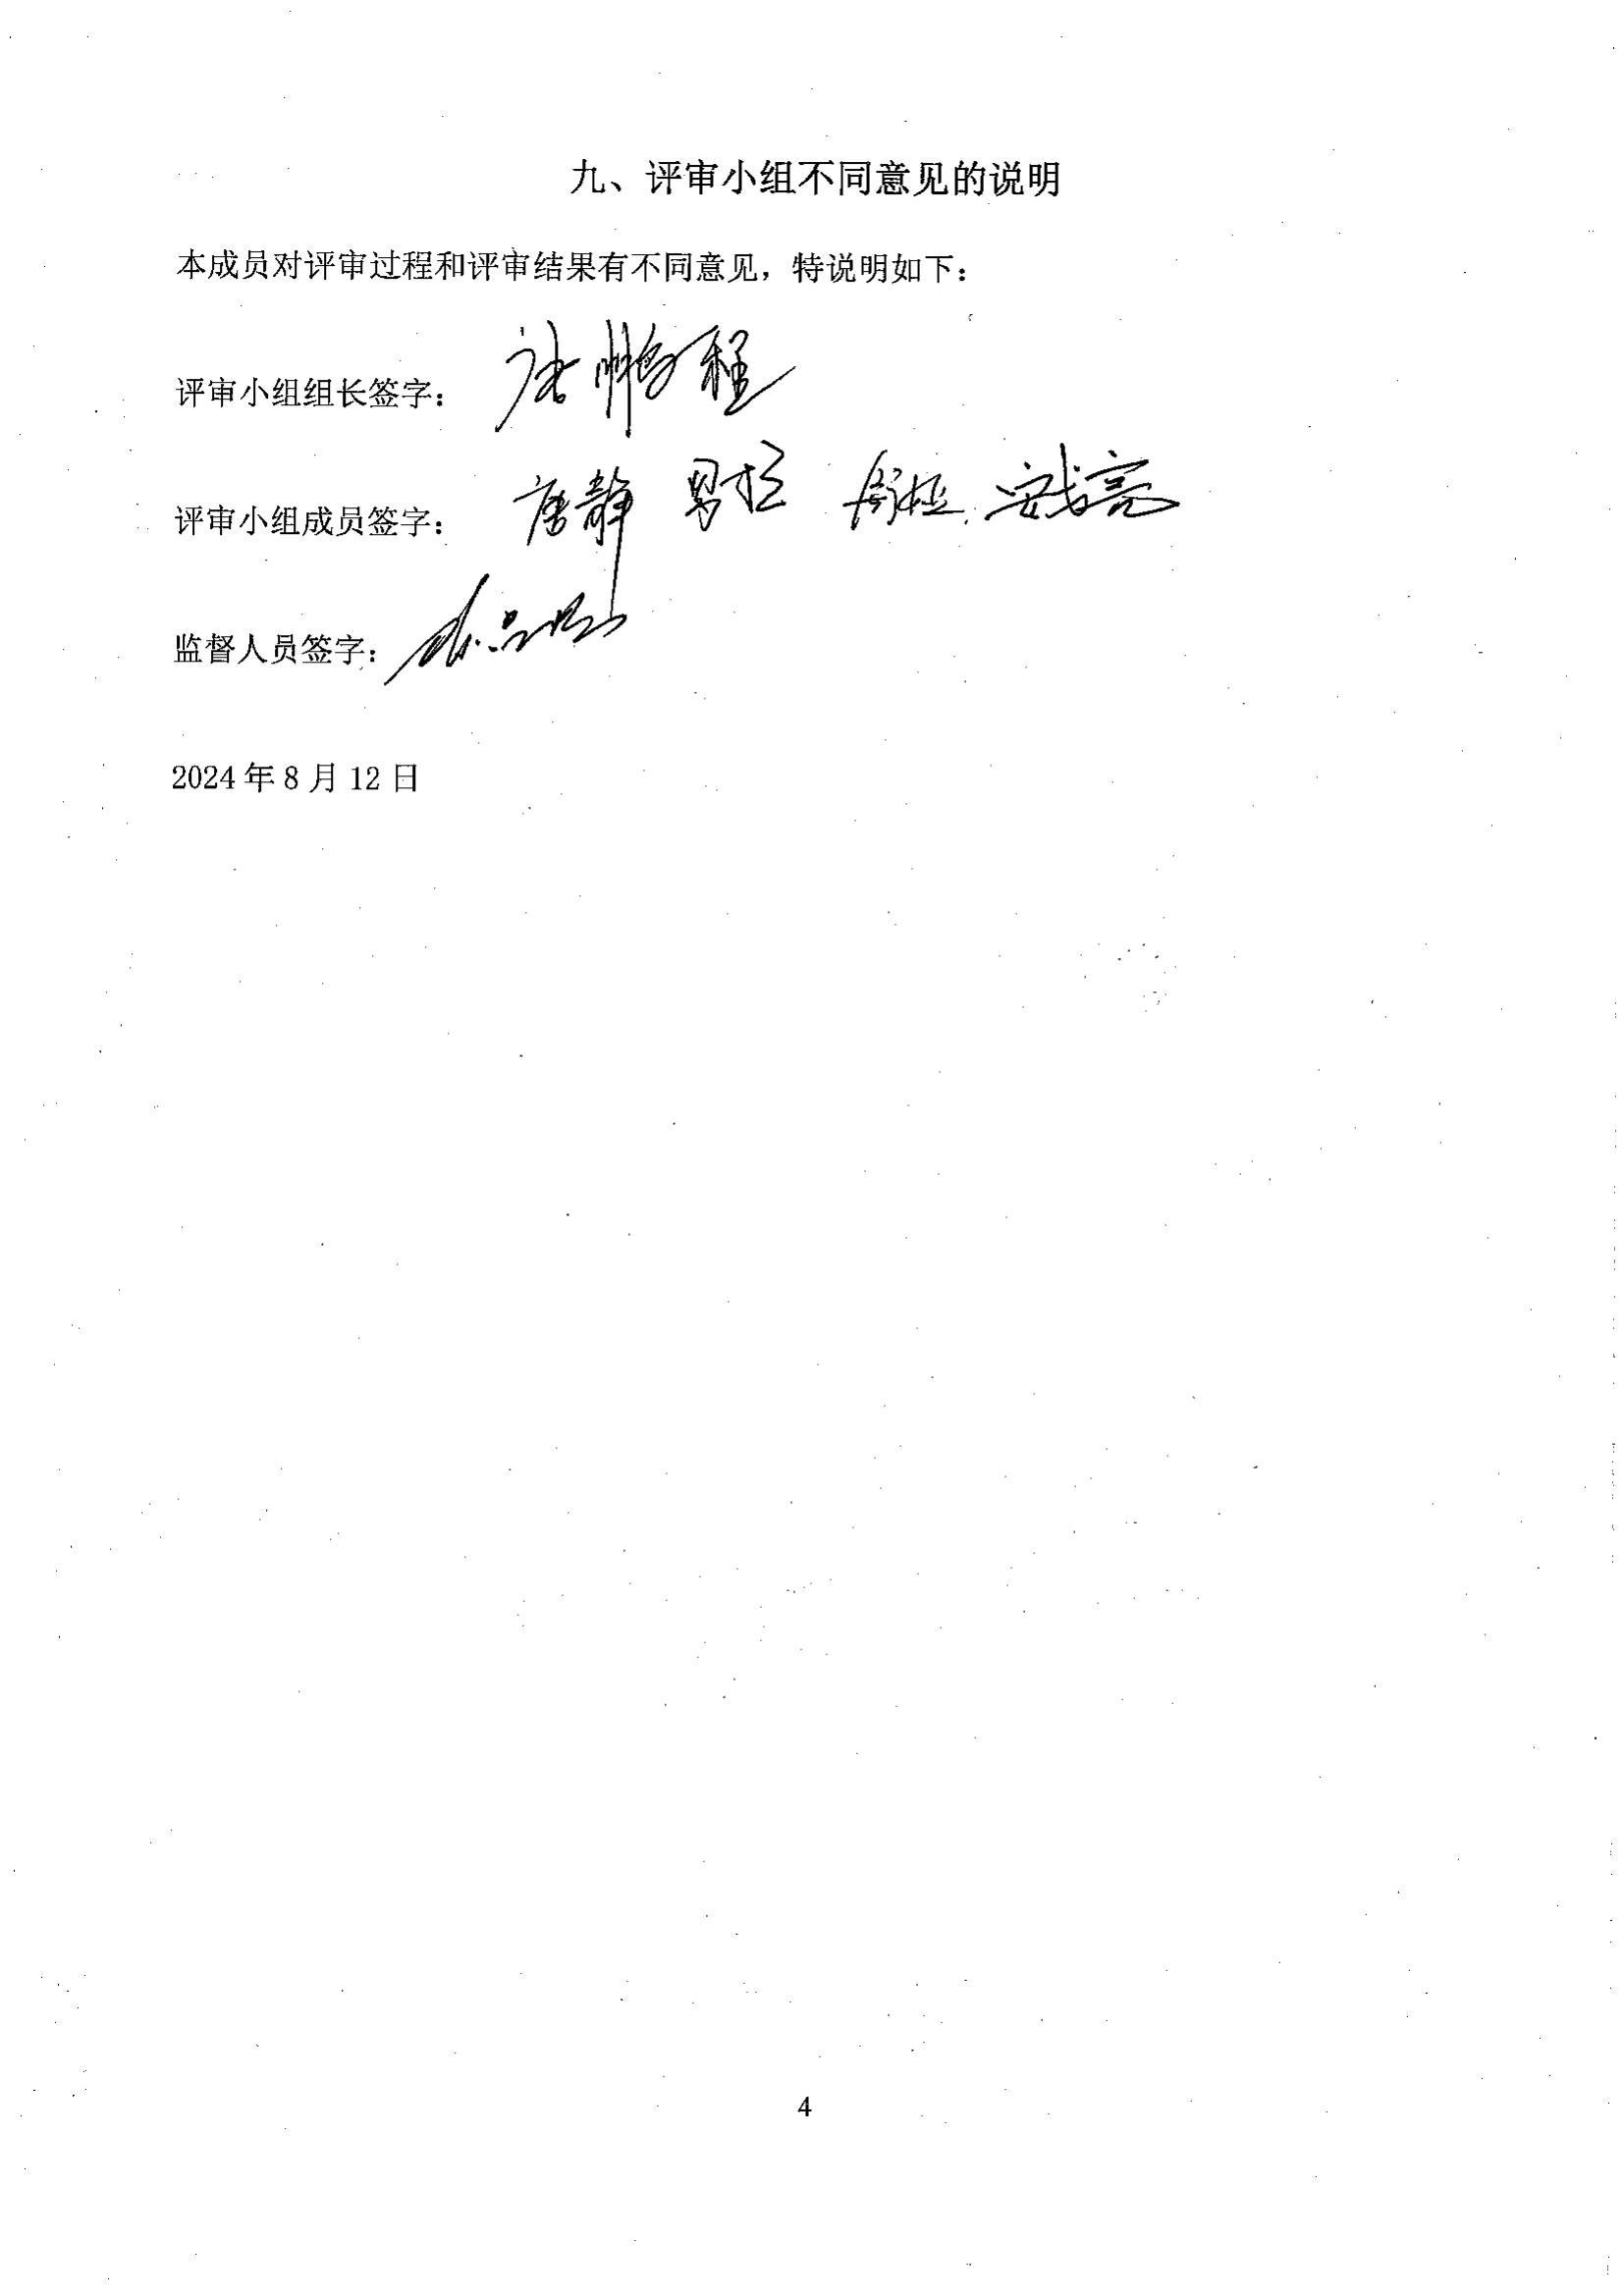 九、评审小组不同意见的说明
本成员对评审过程和评审结果有不同意见，特说明如下：
评审小组组长签字：唐鹏程
评审小组成员签字：唐静
监督人员签字：
2024年8月12日
4